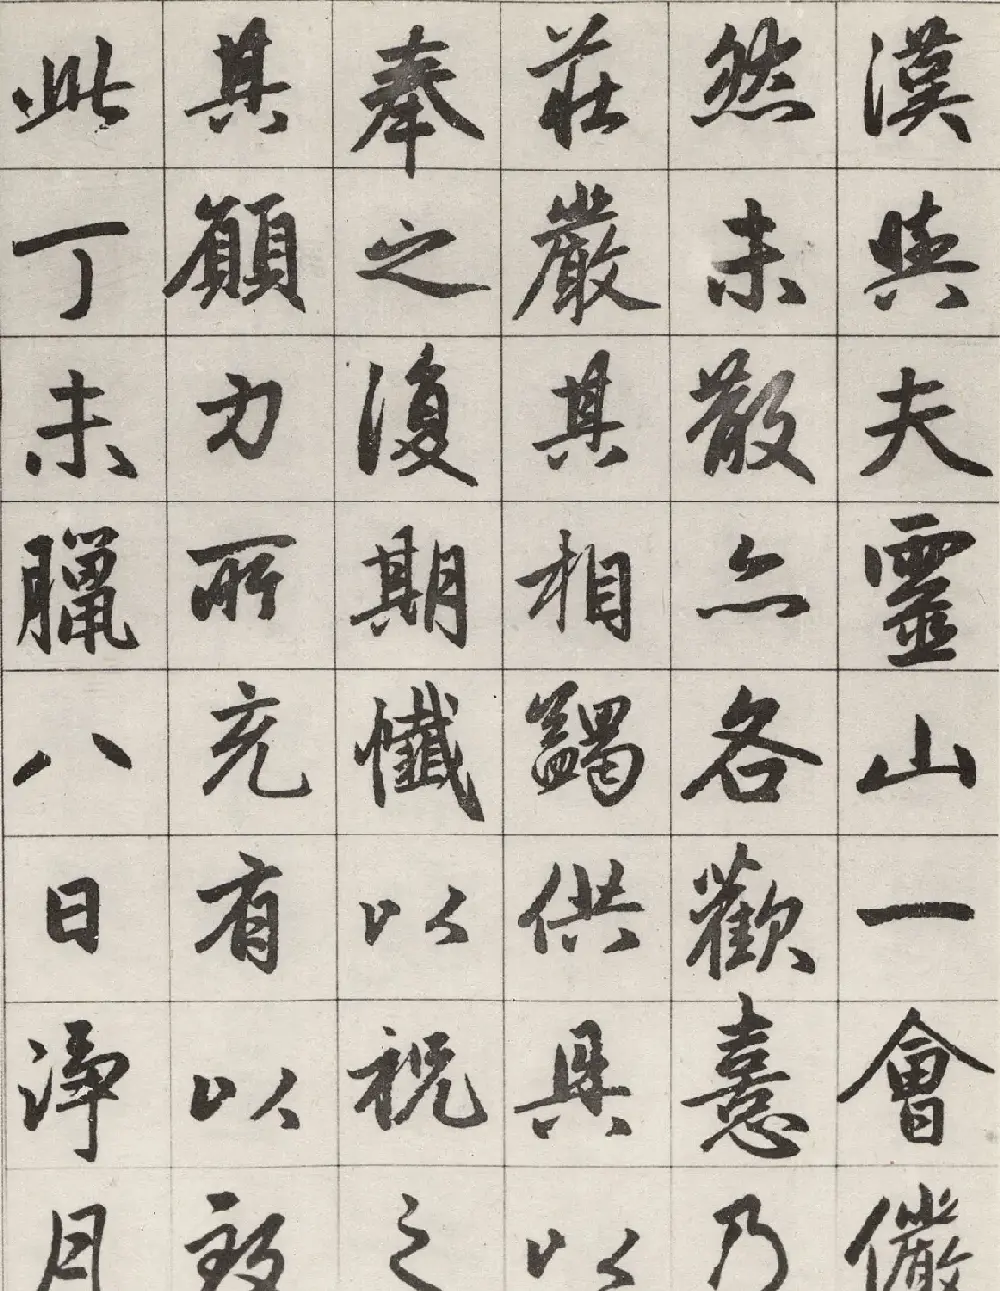 漢與夫靈山一會儼
然未散亦各歡憙乃
莊嚴其相蠲供具以
奉之復期懺以祝之
其願力所充有以致
此丁未臘八日淨月